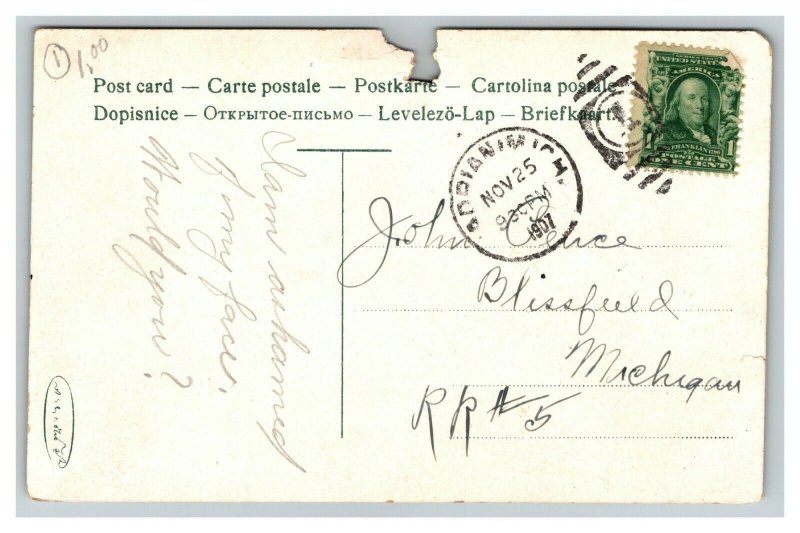 ① 1.00
Post card – Carte postale – Postkarte – Cartolina postale
Dopisnice – Открытое-письмо – Levelezö-Lap – Briefkaart.
UNITED STATES
AMERICA
FRANKLIN
POSTAGE
ONE CENT
1
ADRIAN, MICH.
NOV 25
930 PM
1907
John
Blissfield
Michigan
RR # 5
I am ashamed
of my face.
Would you?